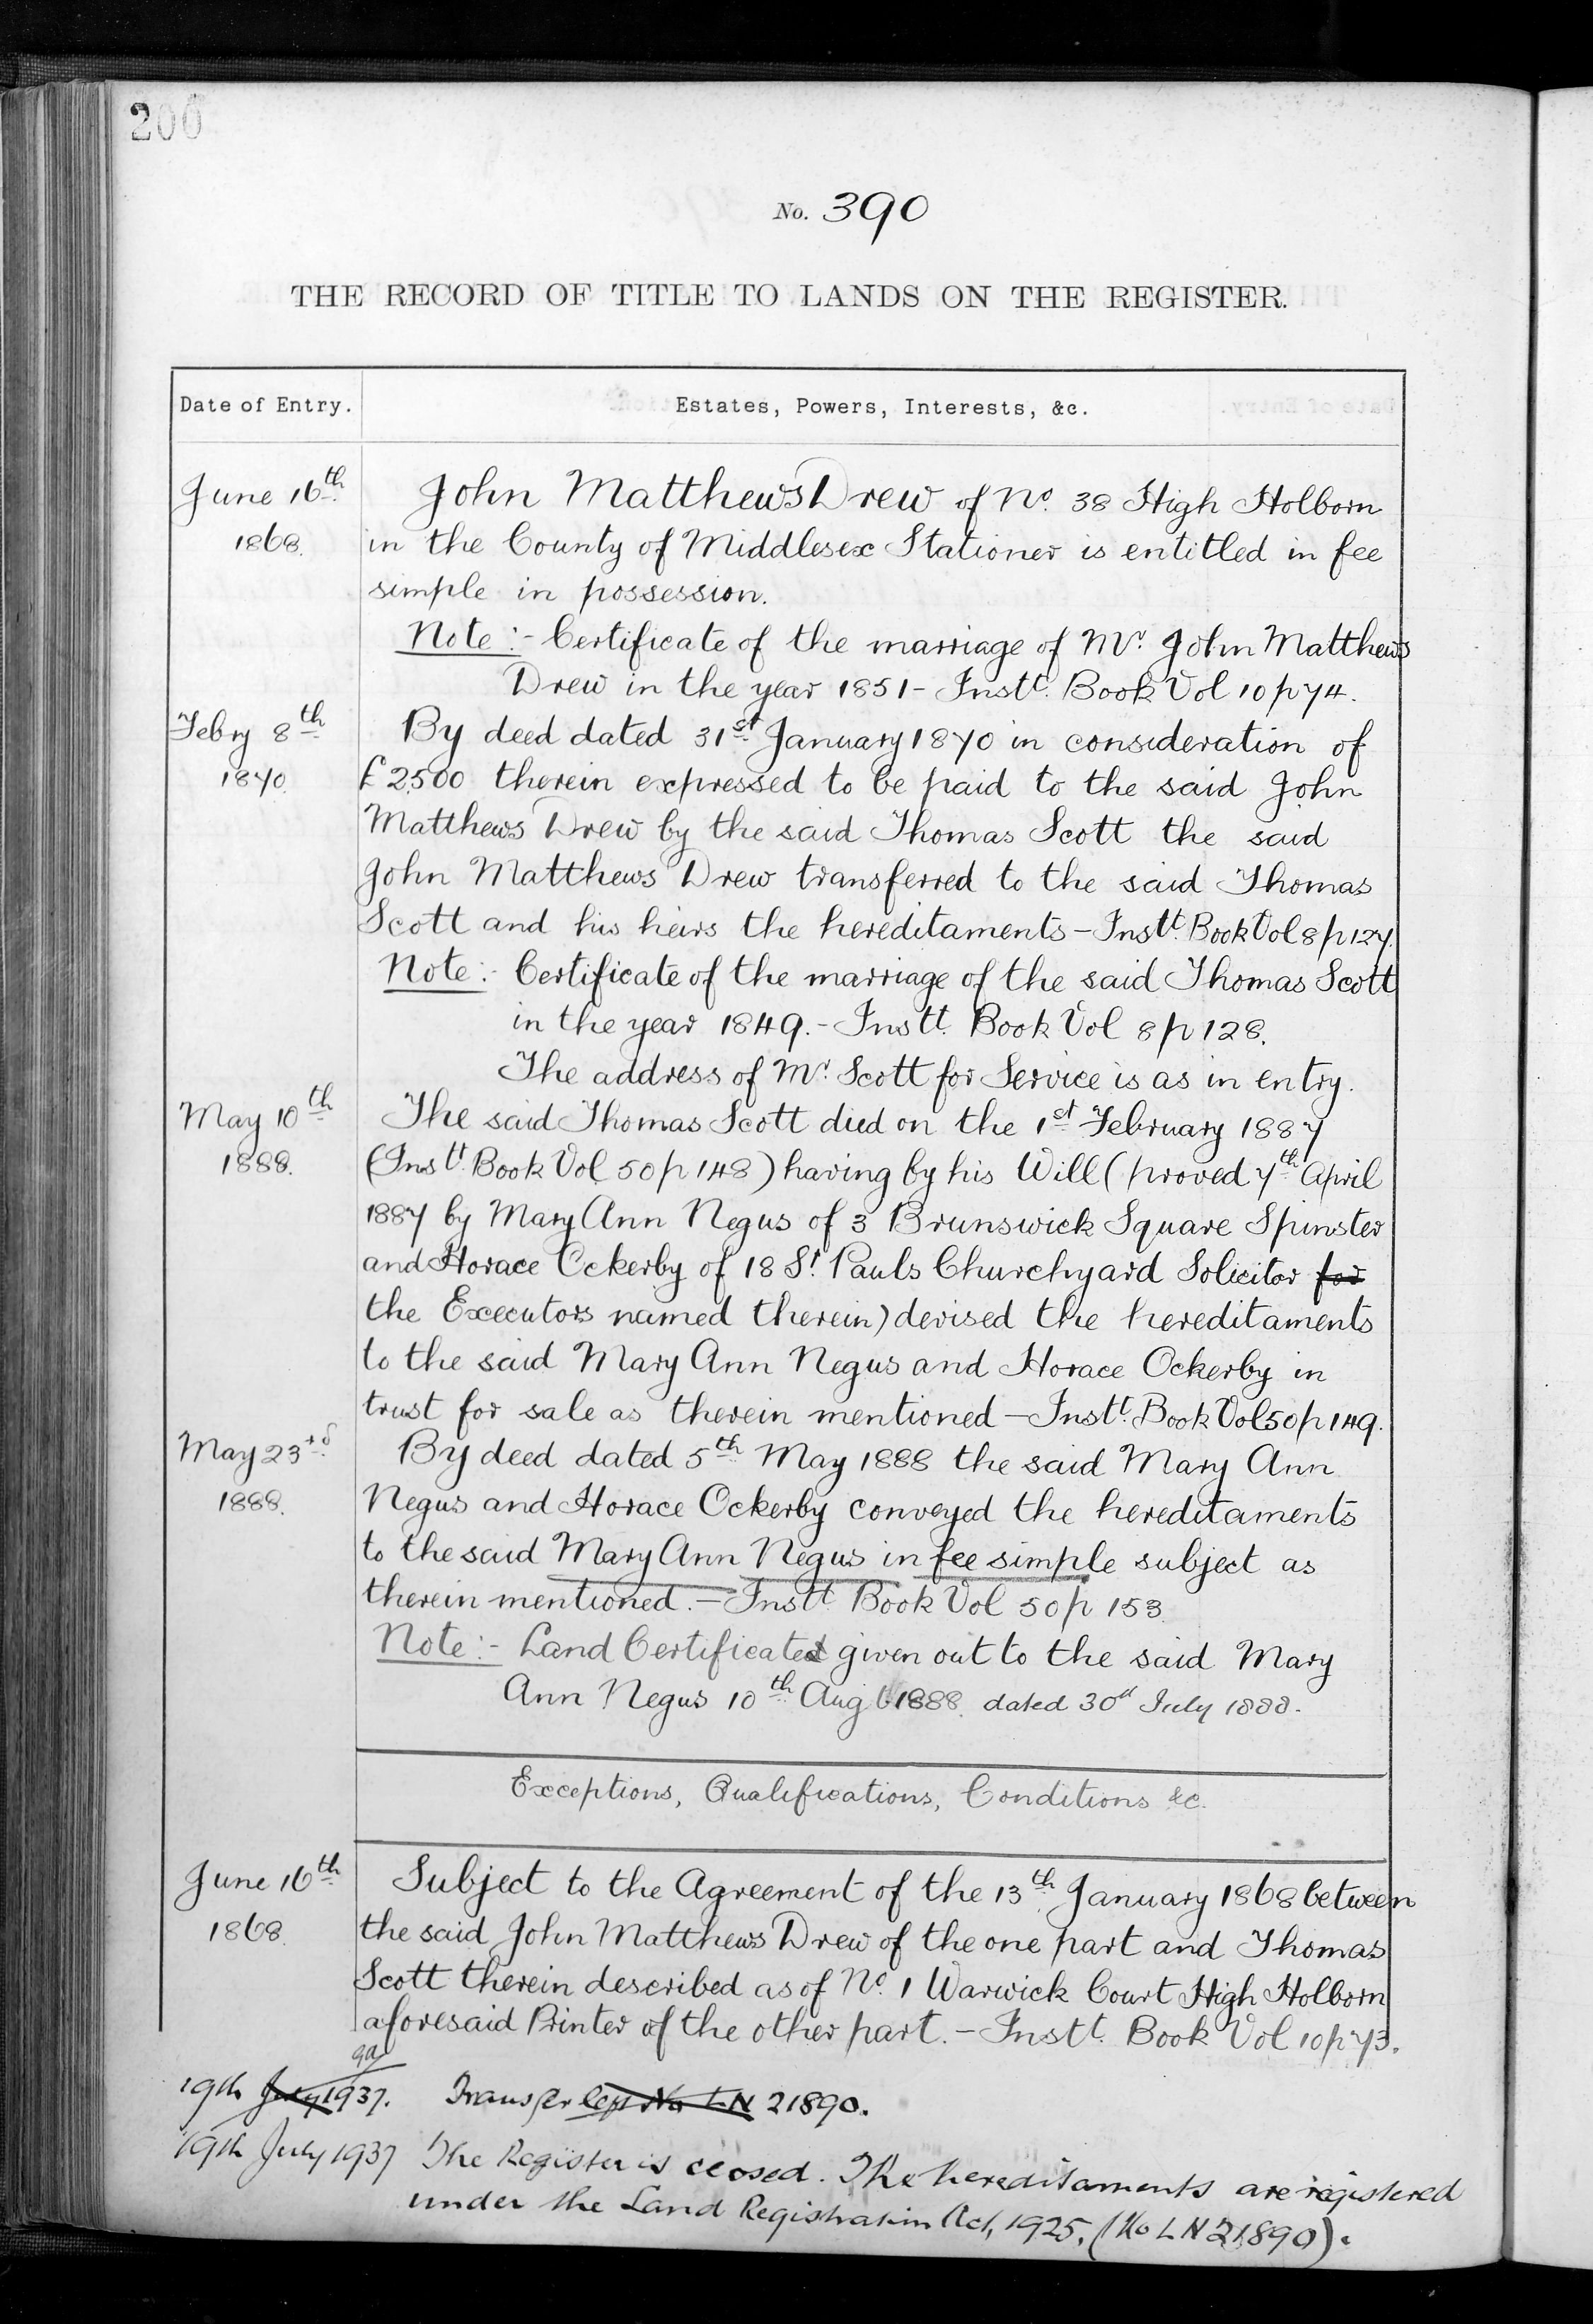 200
No. 390
THE RECORD OF TITLE TO LANDS ON THE REGISTER.
Date of Entry. Estates, Powers, Interests, &c.
June 16th John Matthews Drew of No. 38 High Holborn
1868. in the County of Middlesex Stationer is entitled in fee
simple in possession.
Note:- Certificate of the marriage of Mr. John Matthews
Drew in the year 1851 - Instt. Book Vol 10 p 74.
Febry 8th By deed dated 31st January 1870 in consideration of
1870. £2500 therein expressed to be paid to the said John
Matthews Drew by the said Thomas Scott the said
John Matthews Drew transferred to the said Thomas
Scott and his heirs the hereditaments - Instt. Book Vol 8 p 127.
Note:- Certificate of the marriage of the said Thomas Scott
in the year 1849. - Instt. Book Vol 8 p 128.
The address of Mr. Scott for Service is as in entry.
May 10th The said Thomas Scott died on the 1st February 1887
1888. (Instt. Book Vol 50 p 148) having by his Will (proved 7th April
1887 by Mary Ann Negus of 3 Brunswick Square Spinster
and Horace Ockerby of 18 St. Pauls Churchyard Solicitor for
the Executors named therein) devised the hereditaments
to the said Mary Ann Negus and Horace Ockerby in
trust for sale as therein mentioned - Instt. Book Vol 50 p 149.
May 23rd By deed dated 5th May 1888 the said Mary Ann
1888. Negus and Horace Ockerby conveyed the hereditaments
to the said Mary Ann Negus in fee simple subject as
therein mentioned. - Instt. Book Vol 50 p 153.
Note:- Land Certificate given out to the said Mary
Ann Negus 10th Aug 1888. dated 30th July 1888.
Exceptions, Qualifications, Conditions &c.
June 16th Subject to the Agreement of the 13th January 1868 between
1868. the said John Matthews Drew of the one part and Thomas
Scott therein described as of No. 1 Warwick Court High Holborn
aforesaid Printer of the other part. - Instt. Book Vol 10 p 73.
19th July 1937. Transfer No LN 21890.
19th July 1937 The Register is closed. The hereditaments are registered
under the Land Registration Act, 1925. (No LN 21890).